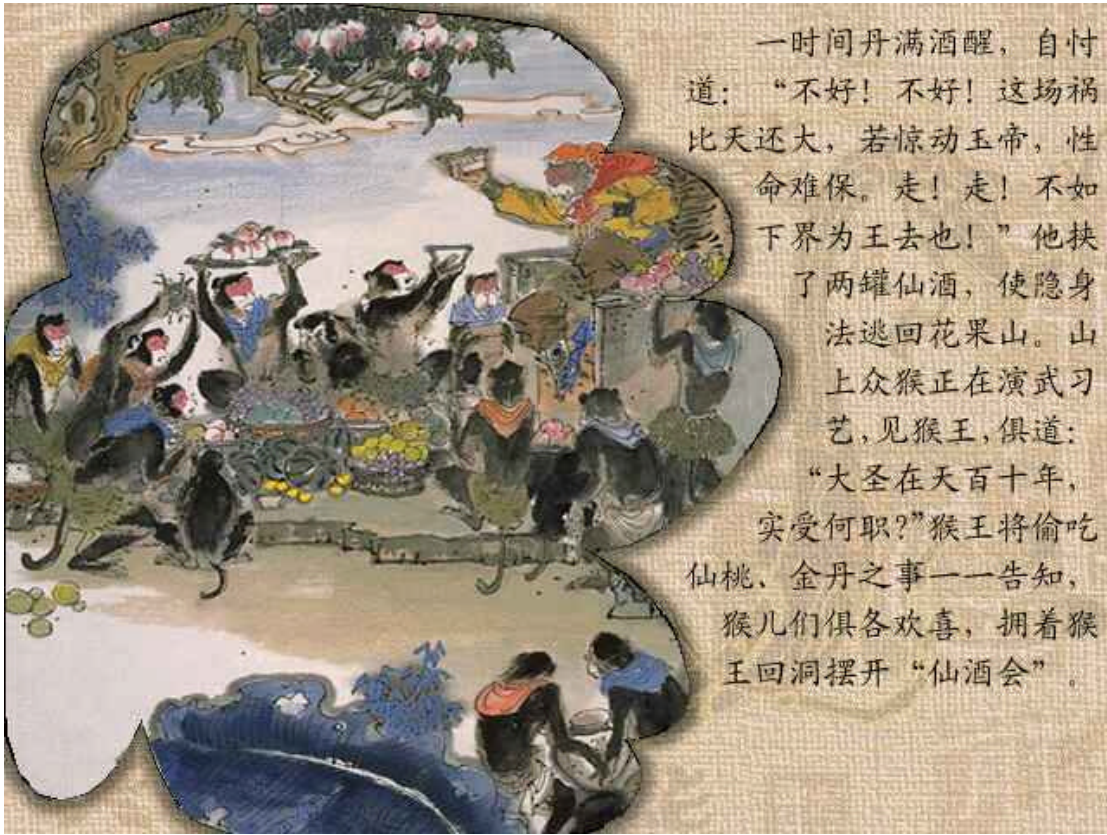 一时间丹满酒醒，自忖
道：“不好！不好！这场祸
比天还大，若惊动玉帝，性
命难保。走！走！不如
下界为王去也！”他挟
了两罐仙酒，使隐身
法逃回花果山。山
上众猴正在演武习
艺，见猴王，俱道：
“大圣在天百十年，
实受何职？”猴王将偷吃
仙桃、金丹之事一一告知，
猴儿们俱各欢喜，拥着猴
王回洞摆开“仙酒会”。